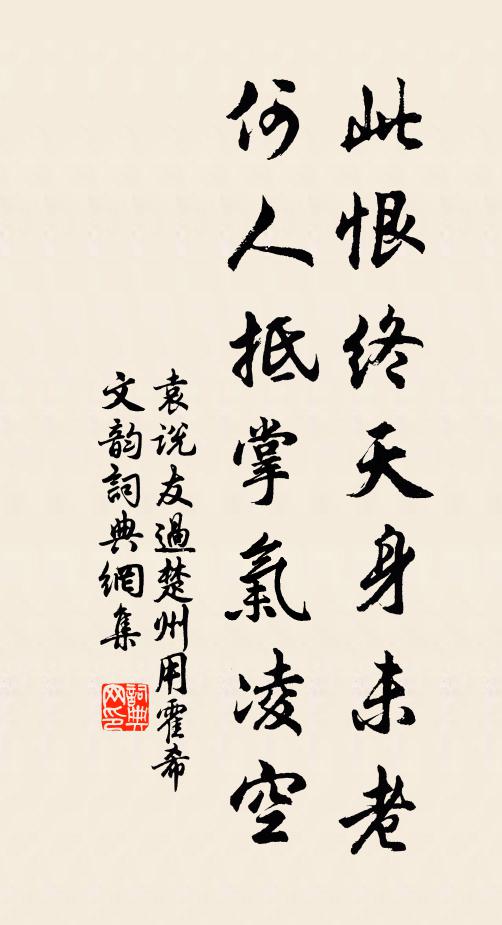 此恨終天身未老
何人抵掌氣凌空
袁説友過楚州用霍希
文韵詞典網集
詞典
网印